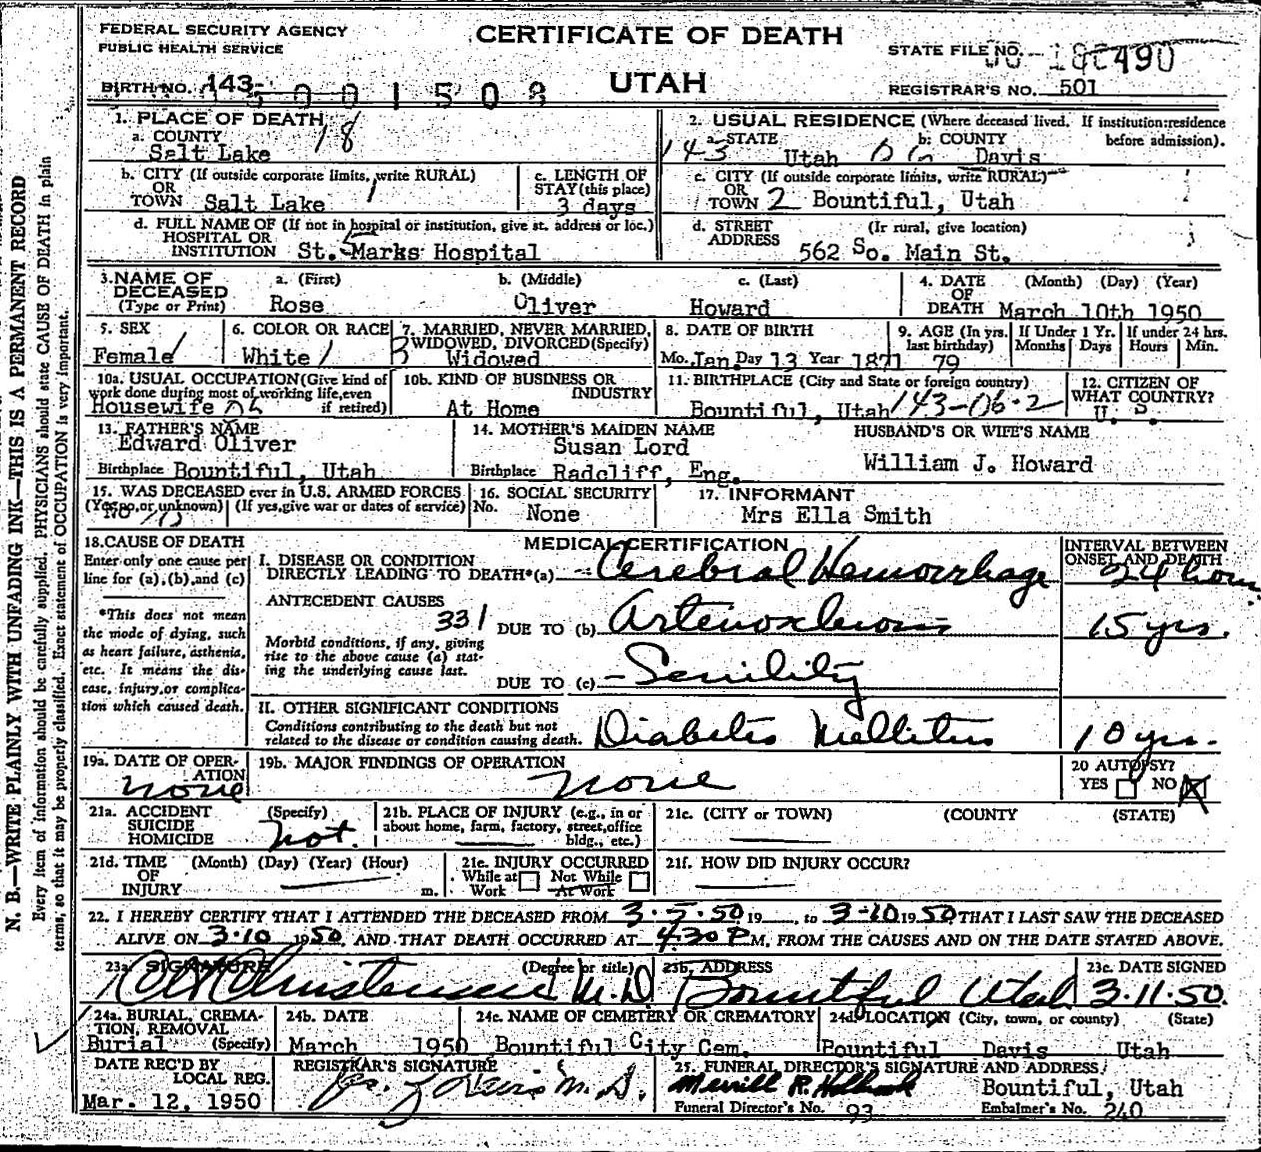 FEDERAL SECURITY AGENCY
PUBLIC HEALTH SERVICE
CERTIFICATE OF DEATH
UTAH
STATE FILE NO.
BIRTH NO. 143
REGISTRAR'S NO. 501
1. PLACE OF DEATH
a. COUNTY
Salt Lake 18
b. CITY (If outside corporate limits, write RURAL)
OR
TOWN Salt Lake 1
c. LENGTH OF
STAY (this place)
3 days
d. FULL NAME OF (If not in hospital or institution, give st. address or loc.)
HOSPITAL OR
INSTITUTION St. Marks Hospital
2. USUAL RESIDENCE (Where deceased lived. If institution:residence
before admission).
a. STATE
143 Utah
b. COUNTY
Davis
c. CITY (If outside corporate limits, write RURAL)
OR
TOWN 2 Bountiful, Utah
d. STREET
ADDRESS
(If rural, give location)
562 So. Main St.
3. NAME OF
DECEASED
(Type or Print)
a. (First)
Rose
b. (Middle)
Oliver
c. (Last)
Howard
4. DATE
OF
DEATH
(Month) (Day) (Year)
March 10th 1950
5. SEX
Female 1
6. COLOR OR RACE
White 1
7. MARRIED, NEVER MARRIED,
WIDOWED, DIVORCED(Specify)
3 Widowed
8. DATE OF BIRTH
Mo. Jan. Day 13 Year 1871
9. AGE (In yrs.
last birthday)
79
If Under 1 Yr.
Months Days
If under 24 hrs.
Hours Min.
10a. USUAL OCCUPATION(Give kind of
work done during most of working life,even
if retired)
Housewife
10b. KIND OF BUSINESS OR
INDUSTRY
At Home
11. BIRTHPLACE (City and State or foreign country)
Bountiful, Utah 143-06-2
12. CITIZEN OF
WHAT COUNTRY?
U. S.
13. FATHER'S NAME
Edward Oliver
Birthplace Bountiful, Utah
14. MOTHER'S MAIDEN NAME
Susan Lord
Birthplace Radcliff, Eng.
HUSBAND'S OR WIFE'S NAME
William J. Howard
15. WAS DECEASED ever in U.S. ARMED FORCES
(Yes,no,or unknown) (If yes,give war or dates of service)
No
16. SOCIAL SECURITY
No. None
17. INFORMANT
Mrs Ella Smith
18.CAUSE OF DEATH
Enter only one cause per
line for (a),(b),and (c)
*This does not mean
the mode of dying, such
as heart failure, asthenia,
etc. It means the dis-
ease, injury,or complica-
tion which caused death.
MEDICAL CERTIFICATION
INTERVAL BETWEEN
ONSET AND DEATH
I. DISEASE OR CONDITION
DIRECTLY LEADING TO DEATH*(a) Cerebral Hemorrhage 24 hours
ANTECEDENT CAUSES
331
DUE TO (b) Arteriosclerosis 15 yrs.
Morbid conditions, if any, giving
rise to the above cause (a) stat-
ing the underlying cause last.
DUE TO (c) Senility
II. OTHER SIGNIFICANT CONDITIONS
Conditions contributing to the death but not
related to the disease or condition causing death.
Diabetes Mellitus 10 yrs.
19a. DATE OF OPER-
ATION
none
19b. MAJOR FINDINGS OF OPERATION
none
20 AUTOPSY?
YES NO X
21a. ACCIDENT
SUICIDE
HOMICIDE
(Specify)
not.
21b. PLACE OF INJURY (e.g., in or
about home, farm, factory, street,office
bldg., etc.)
21c. (CITY or TOWN) (COUNTY (STATE)
21d. TIME
OF
INJURY
(Month) (Day) (Year) (Hour)
m.
21e. INJURY OCCURRED
While at Not While
Work At Work
21f. HOW DID INJURY OCCUR?
22. I HEREBY CERTIFY THAT I ATTENDED THE DECEASED FROM 3-5-50 19__, to 3-10 1950 THAT I LAST SAW THE DECEASED
ALIVE ON 3-10 1950, AND THAT DEATH OCCURRED AT 4:30 P M. FROM THE CAUSES AND ON THE DATE STATED ABOVE.
23a. SIGNATURE
(Degree or title)
Christensen M.D
23b. ADDRESS
Bountiful Utah
23c. DATE SIGNED
3-11-50.
24a. BURIAL, CREMA-
TION, REMOVAL
Burial (Specify)
24b. DATE
March 1950
24c. NAME OF CEMETERY OR CREMATORY
Bountiful City Cem.
24d. LOCATION (City, town, or county) (State)
Bountiful Davis Utah
DATE REC'D BY
LOCAL REG.
Mar. 12, 1950
REGISTRAR'S SIGNATURE
M.D.
25. FUNERAL DIRECTOR'S SIGNATURE AND ADDRESS
Merrill R. Holbrook
Bountiful, Utah
Funeral Director's No. 93
Embalmer's No. 240
N. B.—WRITE PLAINLY WITH UNFADING INK—THIS IS A PERMANENT RECORD
Every item of information should be carefully supplied. PHYSICIANS should state CAUSE OF DEATH in plain
terms, so that it may be properly classified. Exact statement of OCCUPATION is very important.